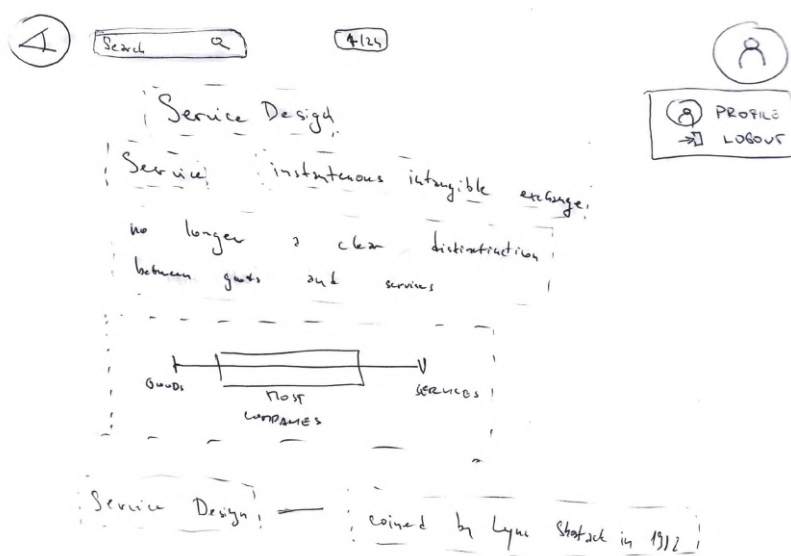 Search
1/24
PROFILE
LOGOUT
Service Design
Service instantenous intangible exchange
no longer a clear distinction
between goods and services
GOODS
MOST
COMPANIES
SERVICES
Service Design — coined by Lynn Shostack in 1982